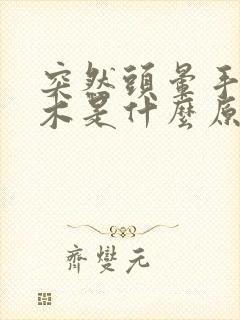 突然頭暈手
木是什麼原
齊燮元